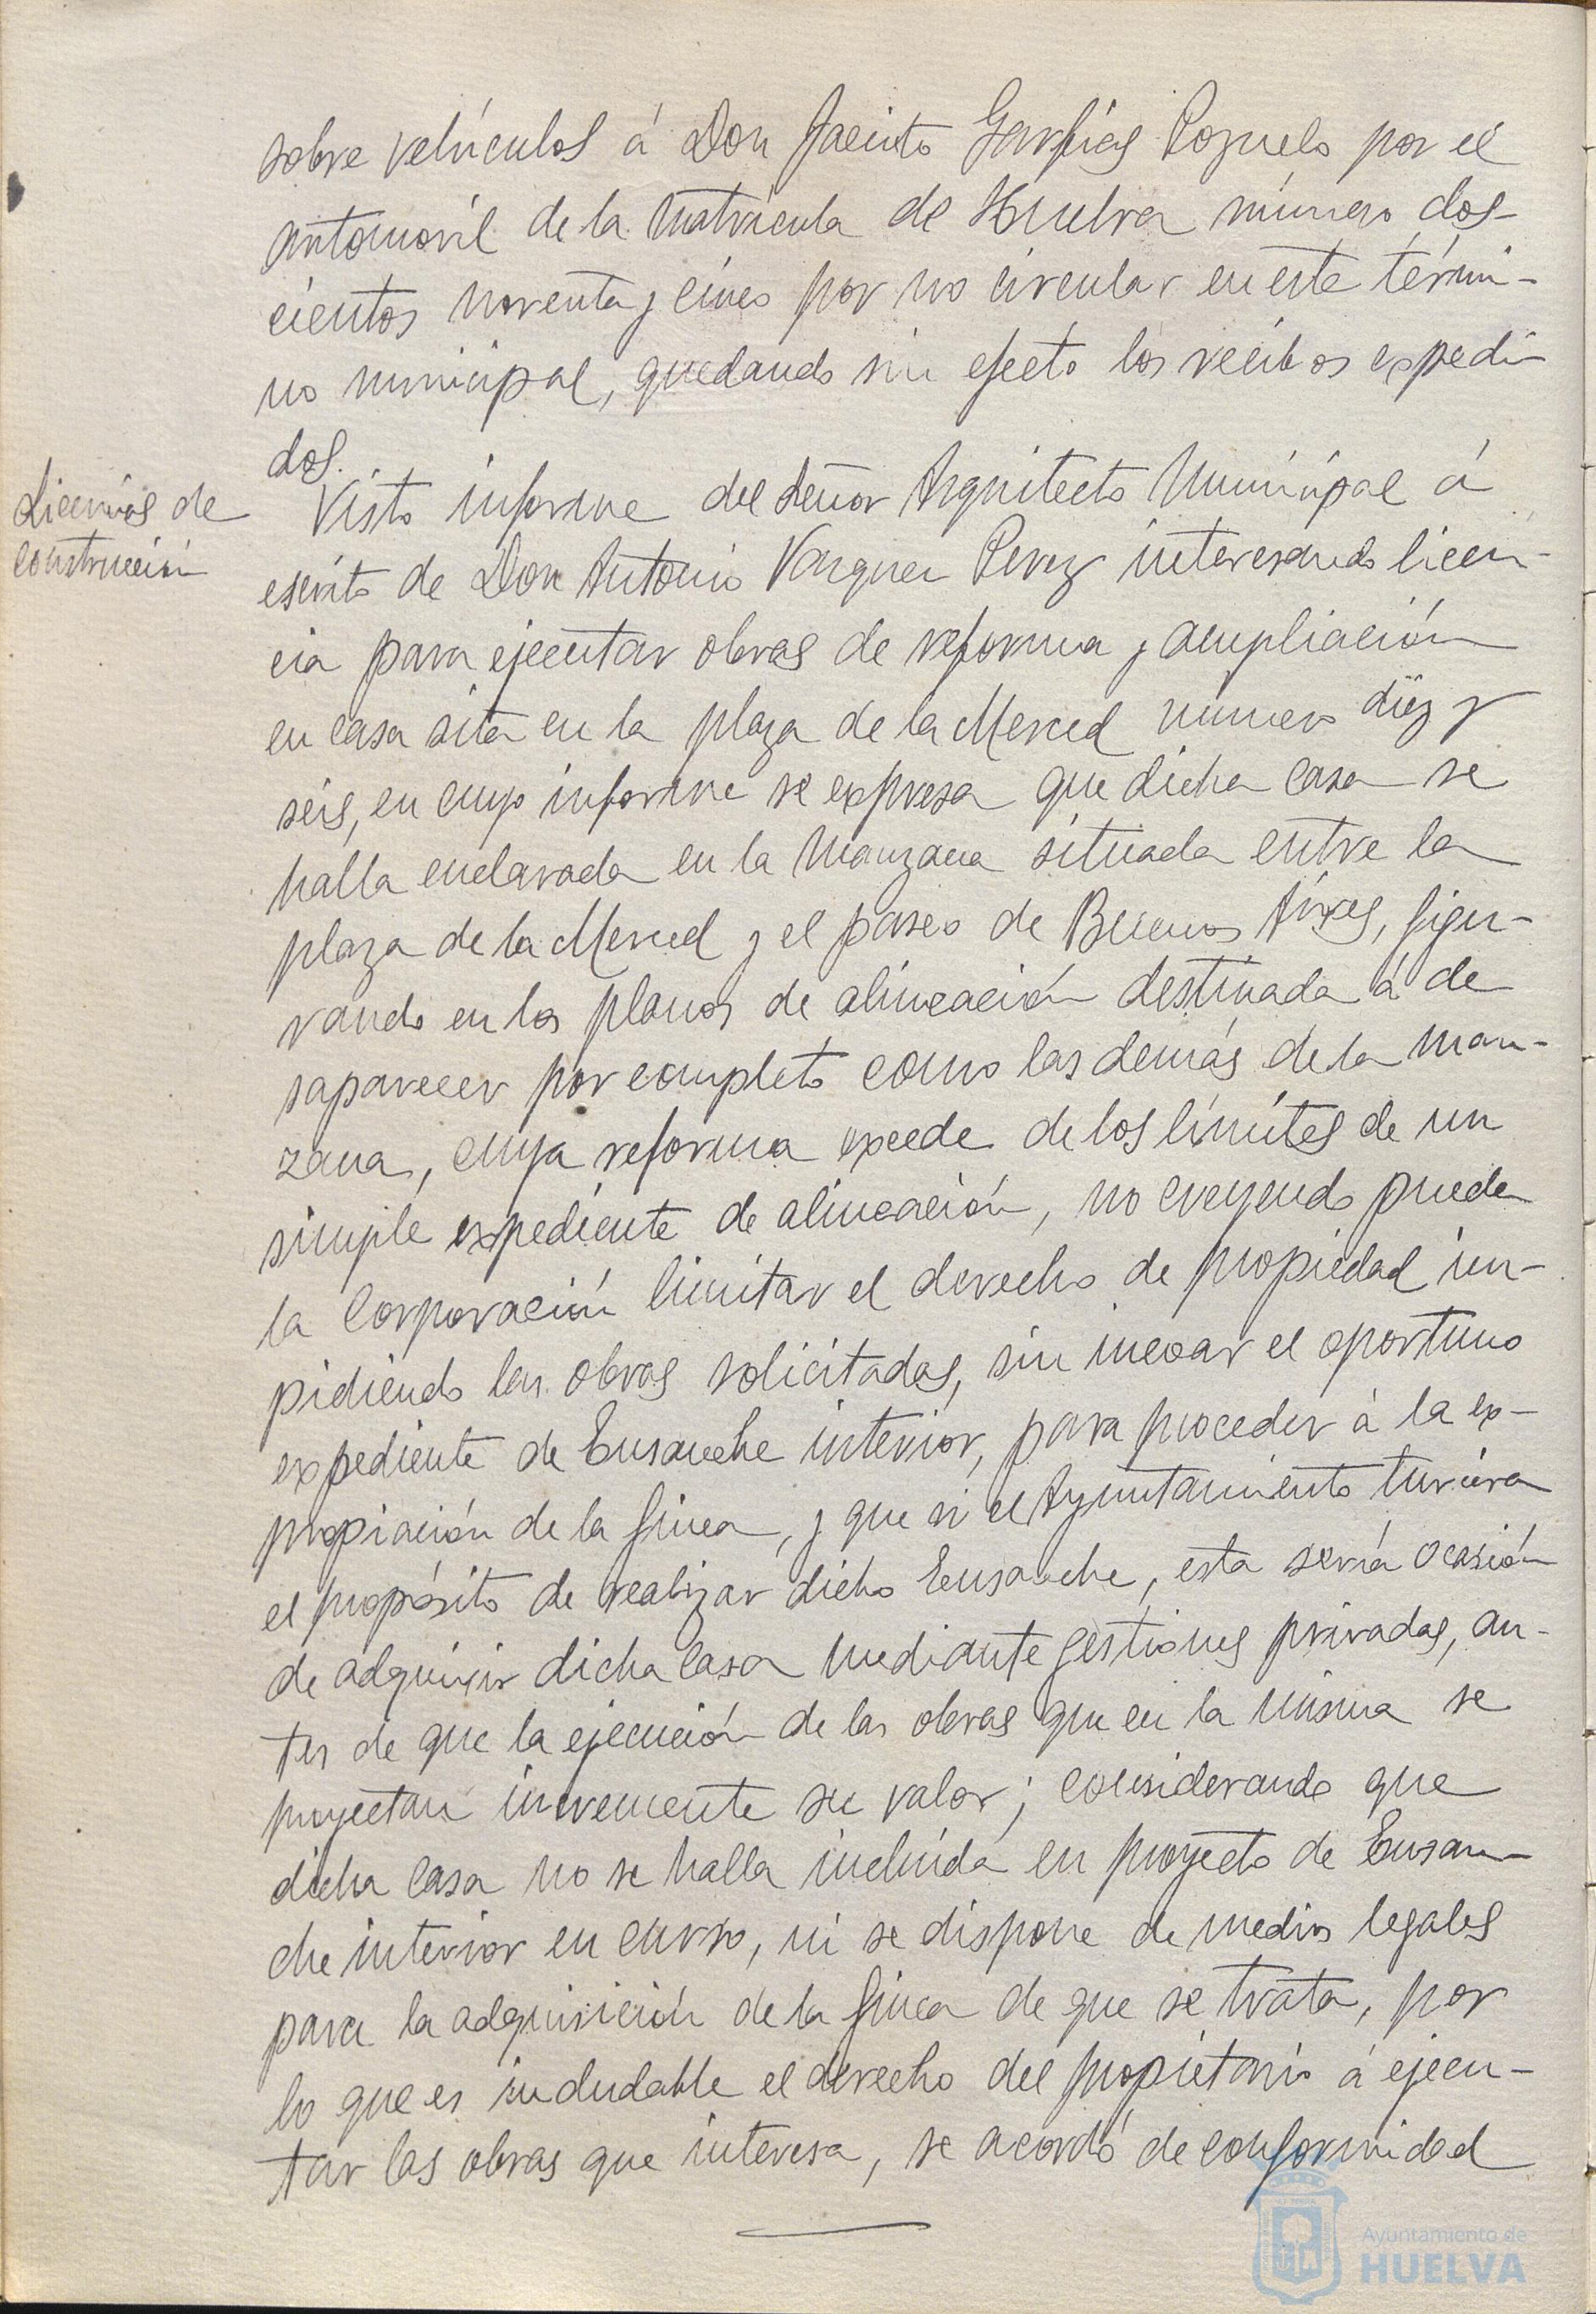 sobre vehículos á Don Jacinto Garfias Pozuelo por el
automóvil de la matrícula de Huelva número dos-
cientos noventa y cinco por no circular en este térmi-
no municipal, quedando sin efecto los recibos expedi-
dos.
Licencias de
construcción
Visto informe del Señor Arquitecto Municipal á
escrito de Don Antonio Vazquez Perez interesando licen-
cia para ejecutar obras de reforma y ampliación
en casa sita en la plaza de la Merced número diez y
seis, en cuyo informe se expresa que dicha casa se
halla enclavada en la manzana situada entre la
plaza de la Merced y el paseo de Buenos Aires, figu-
rando en los planos de alineación destinada á de
saparecer por completo como las demás de la man-
zana, cuya reforma excede de los límites de un
simple expediente de alineación, no creyendo pueda
la Corporación limitar el derecho de propiedad im-
pidiendo las obras solicitadas, sin incoar el oportuno
expediente de Ensanche interior, para proceder á la ex-
propiación de la finca, y que si el Ayuntamiento tuviera
el propósito de realizar dicho Ensanche, esta sería ocasión
de adquirir dicha casa mediante gestiones privadas, an-
tes de que la ejecución de las obras que en la misma se
proyectan incremente su valor; considerando que
dicha casa no se halla incluída en proyecto de Ensan-
che interior en curso, ni se dispone de medios legales
para la adquisición de la finca de que se trata, por
lo que es indudable el derecho del propietario á ejecu-
tar las obras que interesa, se acordó de conformidad
Ayuntamiento de
HUELVA